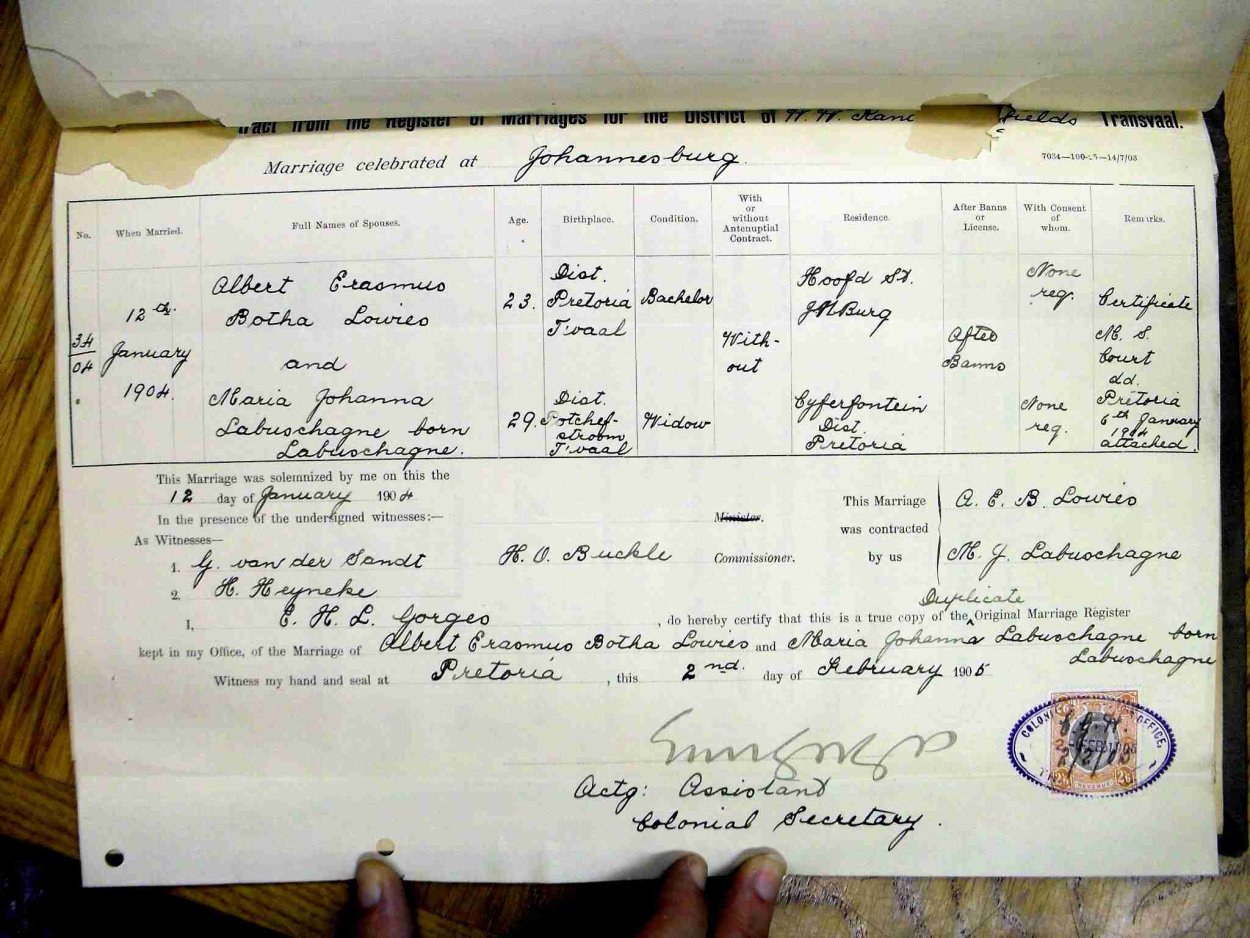 tract from the Register of Marriages for the District of W. W. Rand fields Transvaal.
Marriage celebrated at Johannesburg.
7034—100-25—14/7/03
No. When Married. Full Names of Spouses. Age. Birthplace. Condition. With or without Antenuptial Contract. Residence. After Banns or License. With Consent of whom. Remarks.
34/04 12th. January 1904. Albert Erasmus Botha Lowies 23. Dist. Pretoria T'vaal Bachelor With-out Hoofd St. JHBurg After Banns None req. Certificate M. S. Court dd. Pretoria 6th January 1904 attached.
and
Maria Johanna Labuschagne born Labuschagne. 29. Dist. Potchef-stroom T'vaal Widow Cyferfontein Dist. Pretoria None req.
This Marriage was solemnized by me on this the
12 day of January 1904
In the presence of the undersigned witnesses:—
As Witnesses—
1. G. van der Sandt
2. H. Heyneke
H. O. Buckle
Minister.
Commissioner.
This Marriage was contracted by us
A. E. B. Lowies
M. J. Labuschagne
I, E. H. L. Gorges, do hereby certify that this is a true copy of the Duplicate Original Marriage Register
kept in my Office, of the Marriage of Albert Erasmus Botha Lowies and Maria Johanna Labuschagne born
Labuschagne
Witness my hand and seal at Pretoria, this 2nd. day of February 1905
Actg: Assistant
Colonial Secretary.